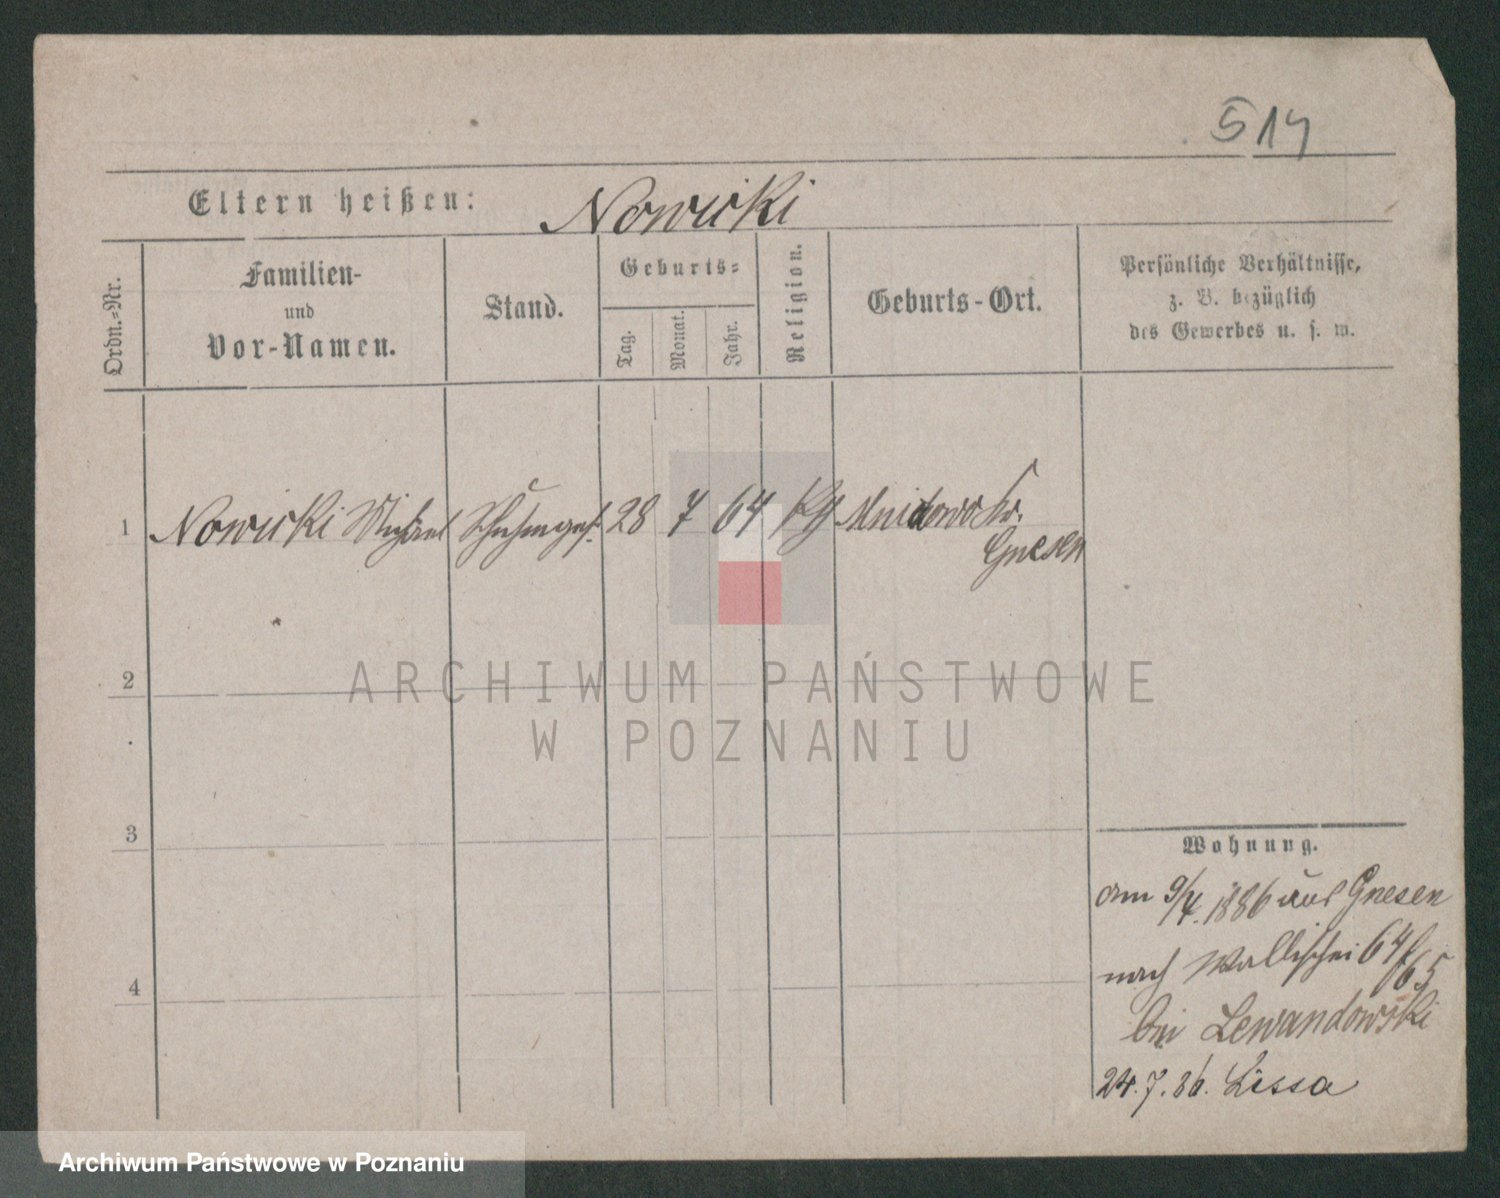 514
Eltern heißen: Nowicki
Ordn.-Nr.
Familien-
und
Vor-Namen.
Stand.
Geburts-
Tag.
Monat.
Jahr.
Religion.
Geburts-Ort.
Persönliche Verhältnisse,
z. B. bezüglich
des Gewerbes u. s. w.
1 Nowicki Michael Schuhmges. 28 7 64 Kr.
Gnesen
ARCHIWUM PAŃSTWOWE
W POZNANIU
2
3
4
Wohnung.
am 9/4. 1886 aus Gnesen
nach Wallischei 64/65
bei Lewandowski
24. 7. 86. Lissa
Archiwum Państwowe w Poznaniu